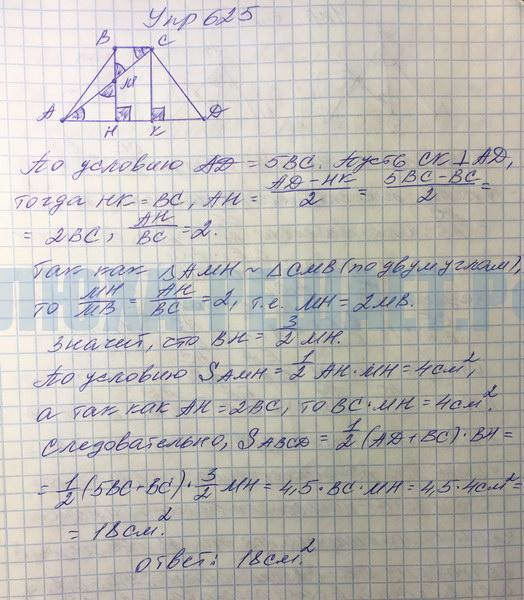 Упр 625
B C
M
A H K D
По условию AD = 5BC. Пусть CK ⊥ AD,
тогда HK = BC, AH = (AD - HK)/2 = (5BC - BC)/2 =
= 2BC, AH/BC = 2.
Так как △AMH ~ △CMB (по двум углам),
то MH/MB = AH/BC = 2, т.е. MH = 2MB.
Значит, что BH = 3/2 MH.
По условию S AMH = 1/2 AH · MH = 4 см²,
а так как AH = 2BC, то BC · MH = 4 см².
Следовательно, S ABCD = 1/2 (AD + BC) · BH =
= 1/2 (5BC + BC) · 3/2 MH = 4,5 · BC · MH = 4,5 · 4 см² =
= 18 см².
Ответ: 18 см².